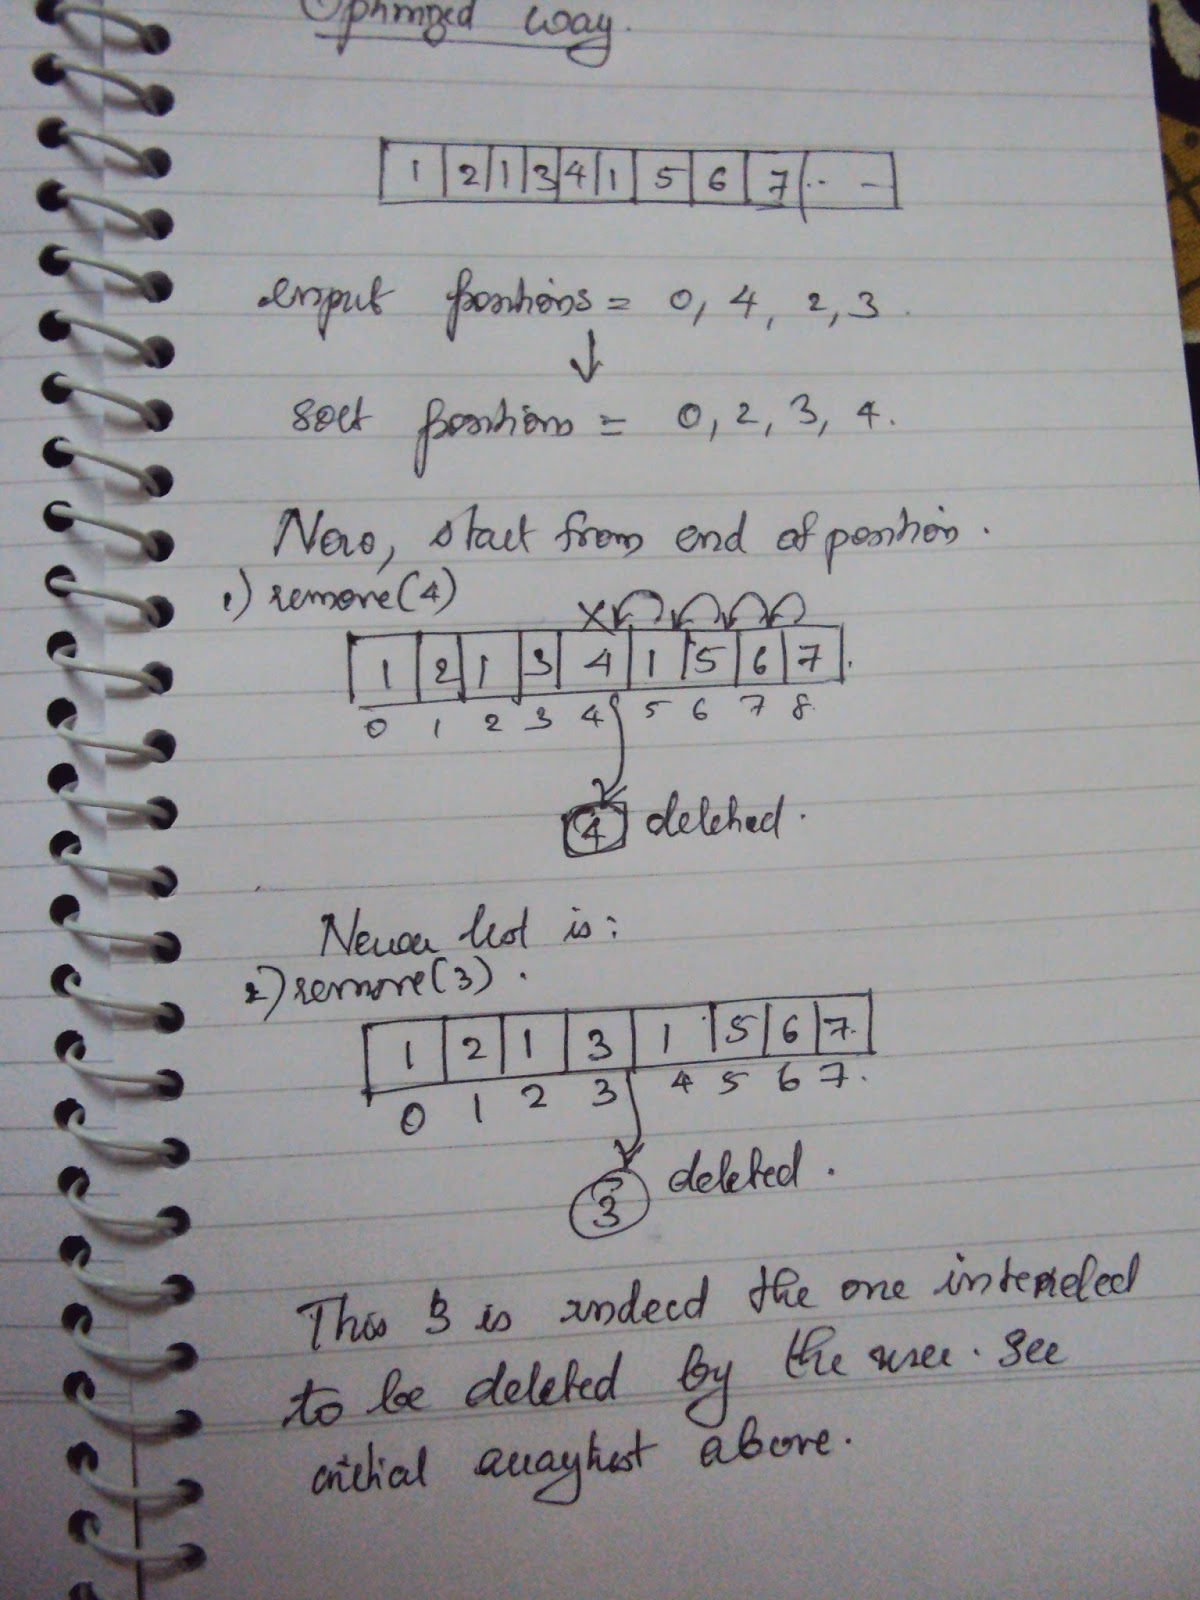 Optimized way.
1 2 1 3 4 1 5 6 7 .. -
Input positions = 0, 4, 2, 3.
↓
sort positions = 0, 2, 3, 4.
Now, start from end of position.
1) remove(4)
X
1 2 1 3 4 1 5 6 7
0 1 2 3 4 5 6 7 8
4 deleted.
Newer list is:
2) remove(3).
1 2 1 3 1 5 6 7.
0 1 2 3 4 5 6 7.
3 deleted.
This 3 is indeed the one intended
to be deleted by the user. See
initial arraylist above.